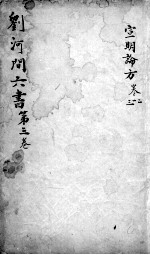 宣明論方 卷二三
劉河間六書第三卷